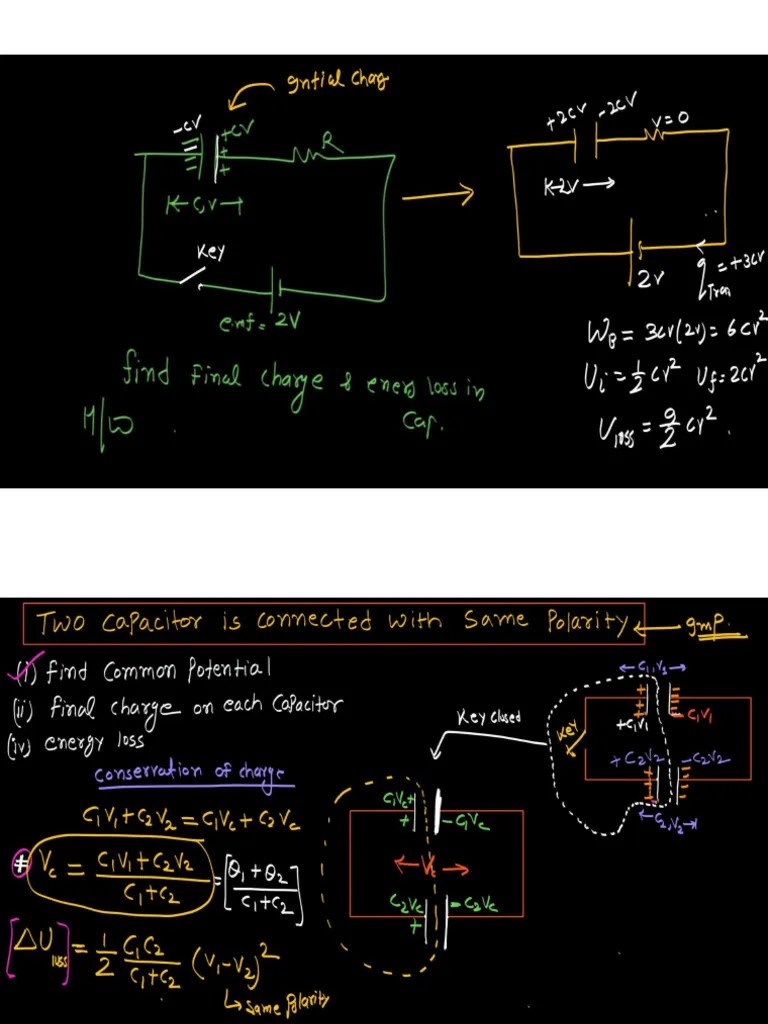 gntial charg
-cv +cv
R
K← C,V →
Key
emf = 2V
find Final Charge & energy loss in Cap.
H/W
+2cv -2cv V=0
K-2V→
2V
q Tran = +3cv
W_B = 3cv(2v) = 6cv²
U_i = 1/2 cv² U_f = 2cv²
U_loss = 9/2 cv².
Two Capacitor is Connected with Same Polarity ← gmp.
(i) find Common Potential
(ii) final charge on each Capacitor
(iv) energy loss
Conservation of charge
C₁V₁+C₂V₂ = C₁Vc + C₂Vc
# Vc = (C₁V₁+C₂V₂)/(C₁+C₂) = [(Q₁+Q₂)/(C₁+C₂)]
[ΔU loss] = 1/2 C₁C₂/(C₁+C₂) (V₁-V₂)²
↳ Same Polarity
Key Closed
C₁Vc+
+ -C₁Vc
← Vc →
C₂Vc = C₂Vc
+
← C₁,V₁ →
+C₁V₁ -C₁V₁
Key
+C₂V₂ -C₂V₂
← C₂,V₂ →